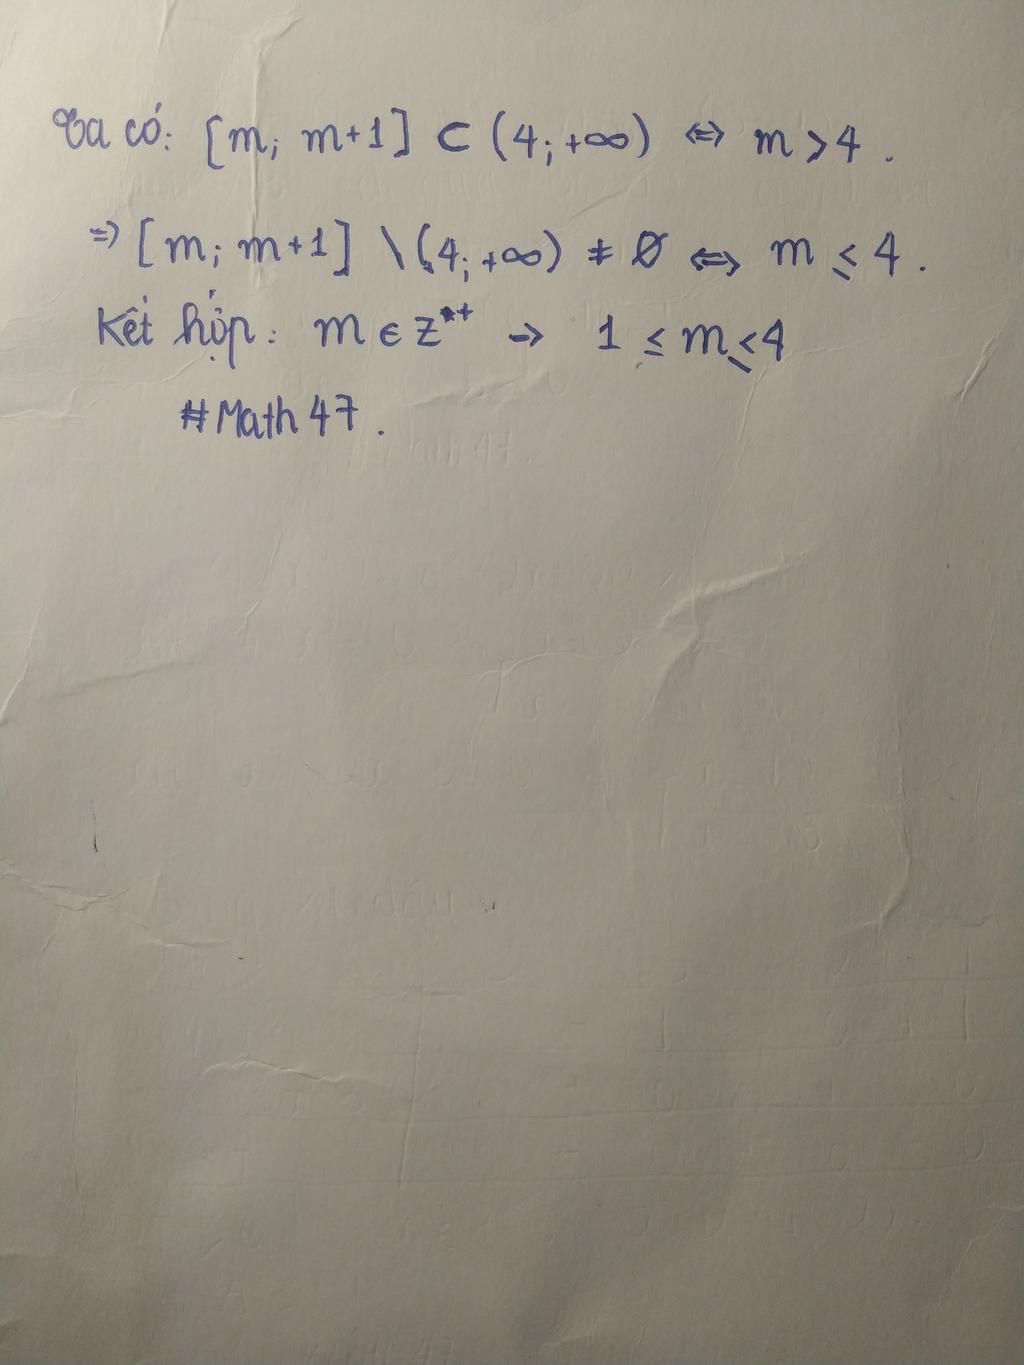 Ta có: [m; m+1] ⊂ (4; +∞) ⇔ m > 4 .
⇒ [m; m+1] \ (4; +∞) ≠ ∅ ⇔ m ≤ 4 .
Kết hợp: m ∈ Z*⁺ → 1 ≤ m ≤ 4
#Math 47 .